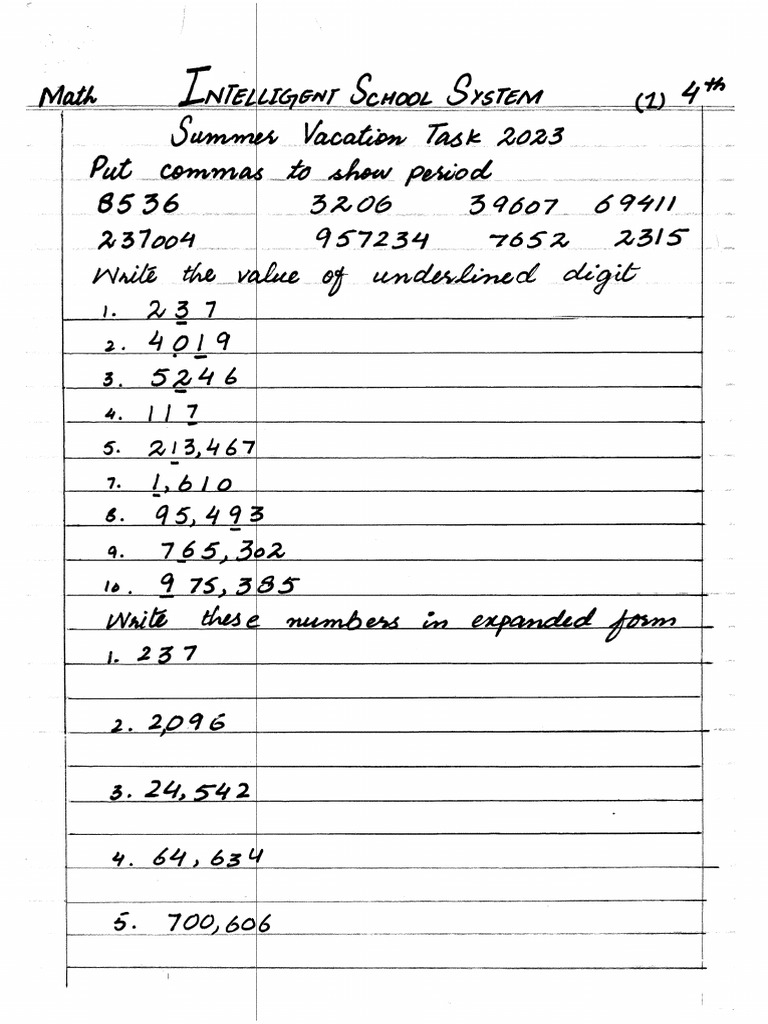 Math INTELLIGENT SCHOOL SYSTEM (1) 4th
Summer Vacation Task 2023
Put commas to show period
8536 3206 39607 69411
237004 957234 7652 2315
Write the value of underlined digit
1. 237
2. 4019
3. 5246
4. 117
5. 213,467
7. 1,610
8. 95,493
9. 765,302
10. 975,385
Write these numbers in expanded form
1. 237
2. 2,096
3. 24,542
4. 64,634
5. 700,606